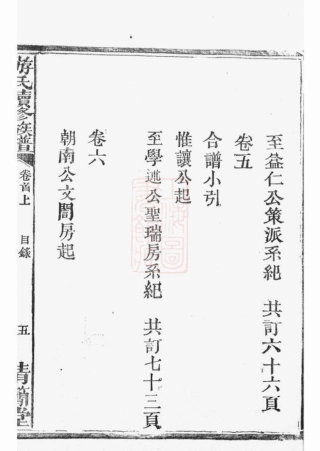 至益仁公策派系紀 共訂六十六頁
卷五
合譜小引
惟讓公起
至學述公聖瑞房系紀 共訂七十三頁
卷六
朝南公文閣房起
游氏續修族譜
卷首上
目錄
五